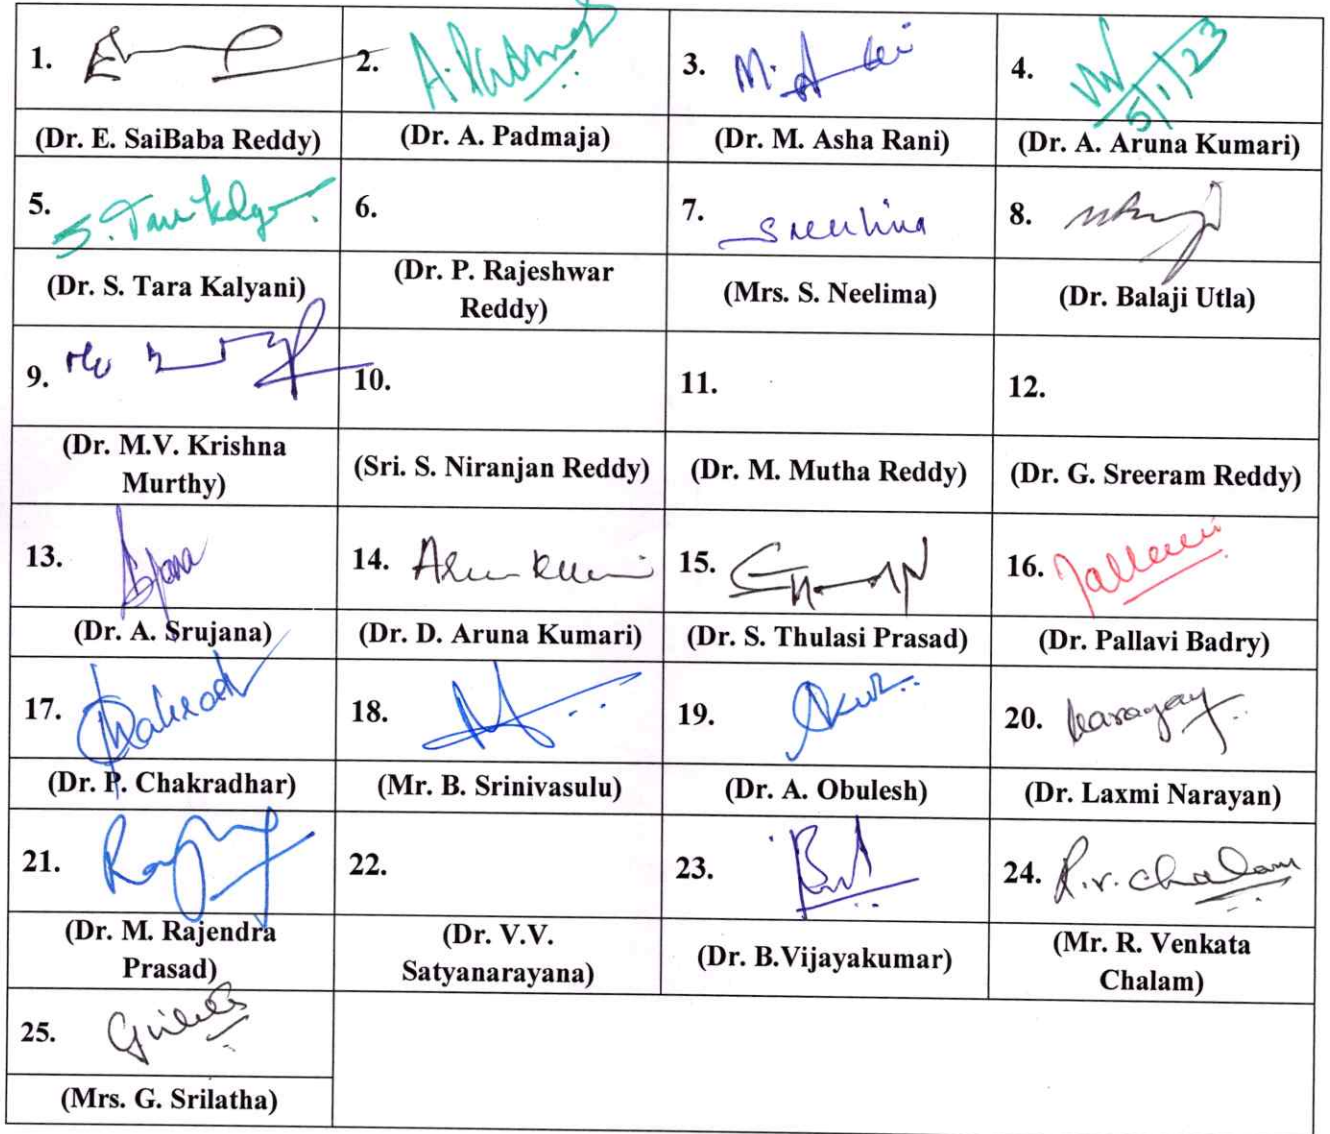 1.
2. A. Padmaja
3. M. Asha Rani
4. 5/1/23
(Dr. E. SaiBaba Reddy)
(Dr. A. Padmaja)
(Dr. M. Asha Rani)
(Dr. A. Aruna Kumari)
5. S. Tara Kalyani
6.
7. S Neelima
8.
(Dr. S. Tara Kalyani)
(Dr. P. Rajeshwar
Reddy)
(Mrs. S. Neelima)
(Dr. Balaji Utla)
9.
10.
11.
12.
(Dr. M.V. Krishna
Murthy)
(Sri. S. Niranjan Reddy)
(Dr. M. Mutha Reddy)
(Dr. G. Sreeram Reddy)
13.
14.
15.
16. Pallavi
(Dr. A. Srujana)
(Dr. D. Aruna Kumari)
(Dr. S. Thulasi Prasad)
(Dr. Pallavi Badry)
17.
18.
19.
20. Narayan
(Dr. P. Chakradhar)
(Mr. B. Srinivasulu)
(Dr. A. Obulesh)
(Dr. Laxmi Narayan)
21.
22.
23.
24. R.V. Chalam
(Dr. M. Rajendra
Prasad)
(Dr. V.V.
Satyanarayana)
(Dr. B.Vijayakumar)
(Mr. R. Venkata
Chalam)
25.
(Mrs. G. Srilatha)